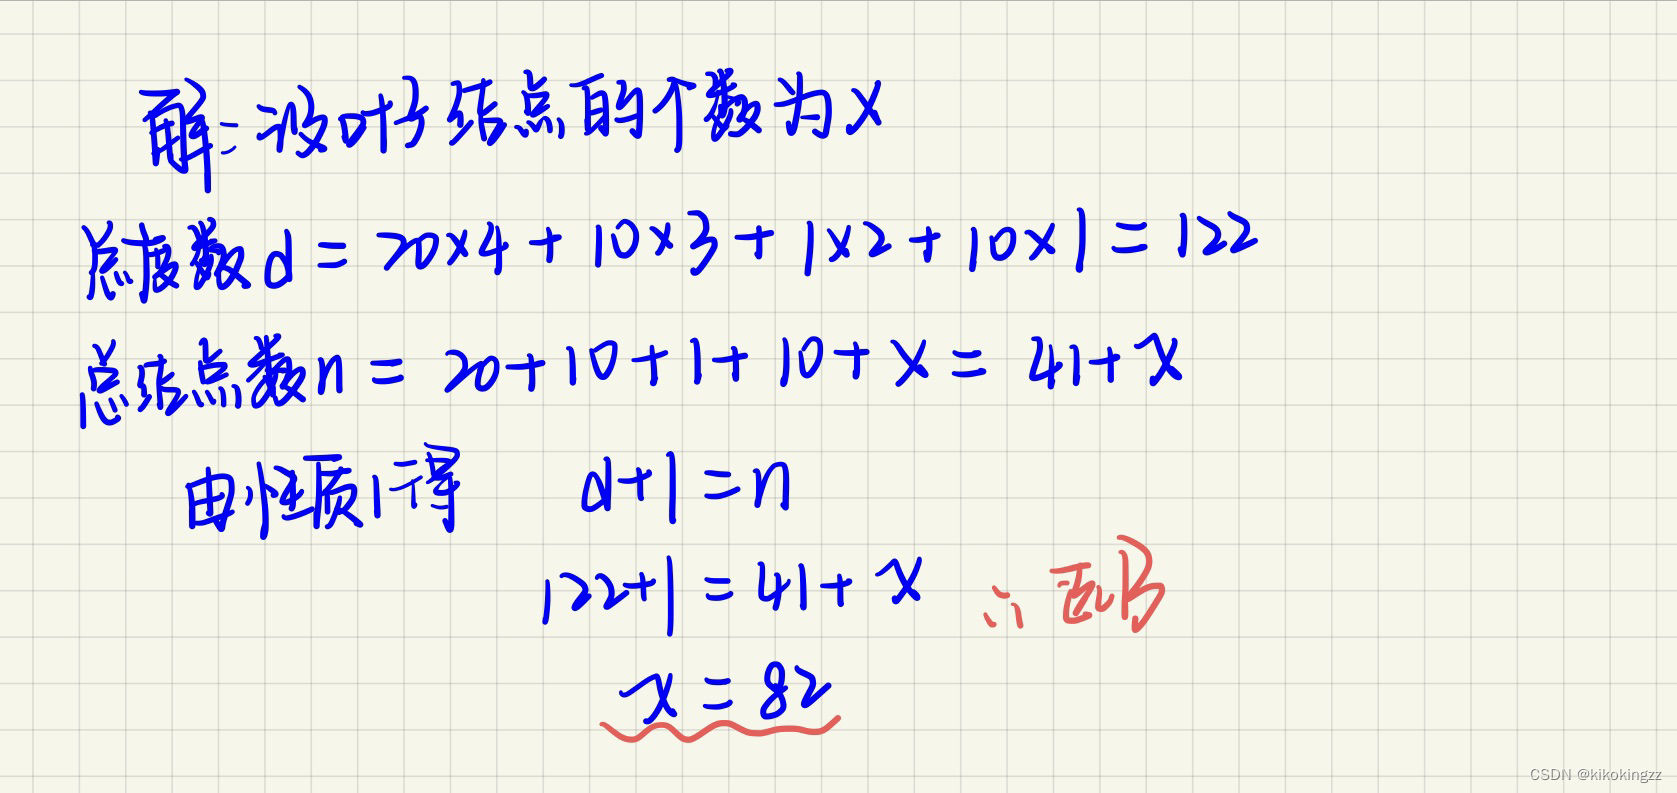 解:设叶子结点的个数为x
总度数d = 20×4 + 10×3 + 1×2 + 10×1 = 122
总结点数n = 20+10+1+10+x = 41+x
由性质1得 d+1=n
122+1=41+x ∴选B
x=82
CSDN @kikokingzz